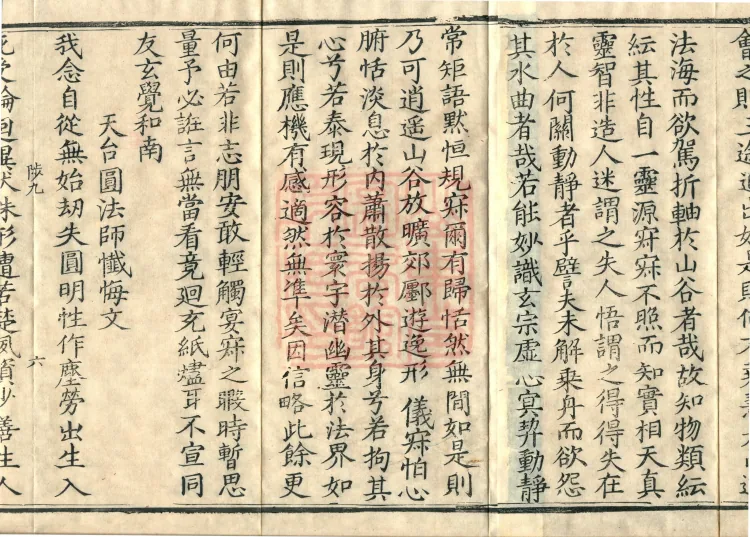 法海而欲駕折軸於山谷者哉故知物類紜
紜其性自一靈源寂寂不照而知實相天真
靈智非造人迷謂之失人悟謂之得得失在
於人何關動靜者乎譬夫未解乘舟而欲怨
其水曲者哉若能妙識玄宗虛心冥契動靜
常矩語默恒規寂爾有歸恬然無間如是則
乃可逍遥山谷放曠郊鄽遊逸形儀寂怕心
腑恬淡息於內蕭散揚於外其身兮若拘其
心兮若泰現形容於寰宇潛幽靈於法界如
是則應機有感適然無凖矣因信略此餘更
何由若非志朋安敢輕觸宴寂之暇時暫思
量予必誑言無當看竟迴充紙燼耳不宣同
友玄覺和南
天台圓法師懺悔文
我念自從無始劫失圓明性作塵勞出生入
陟九 六
死受輪迴異狀殊形遭苦楚夙資少善生人